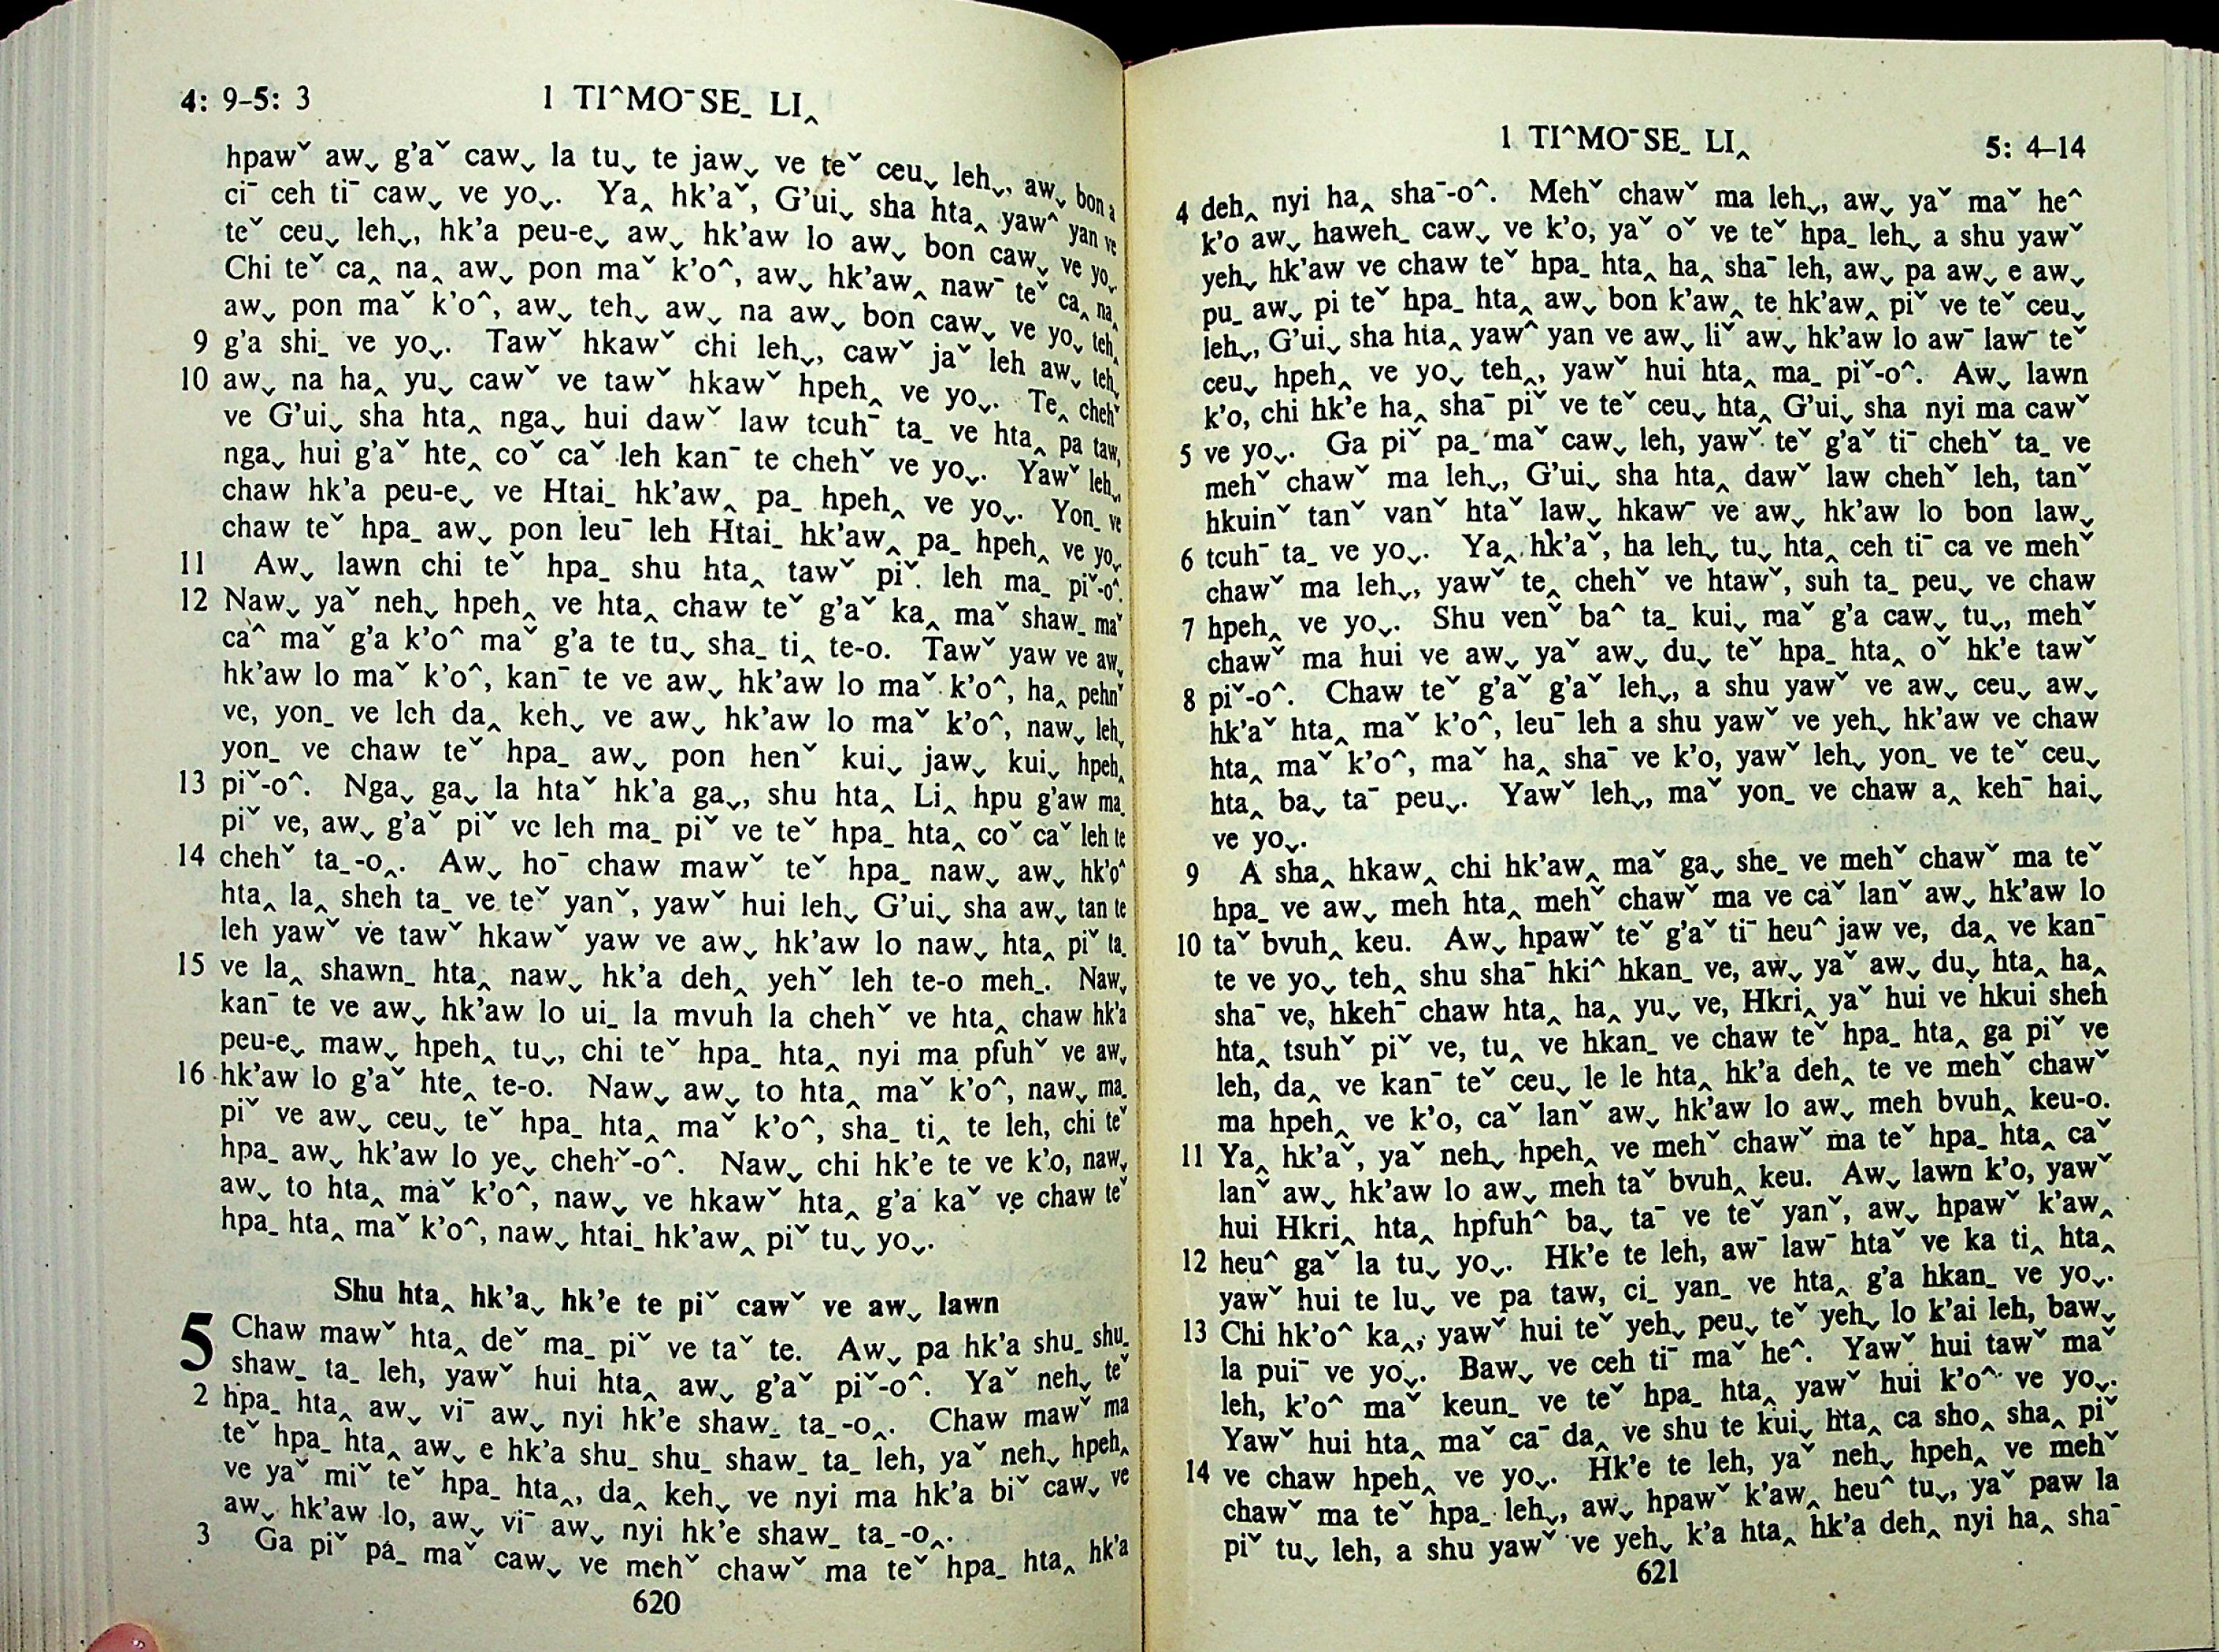 4: 9–5: 3 1 TIˆMOˉSE_ LI‸
hpawˇ aw⌄ g'aˇ caw⌄ la tu⌄ te jaw⌄ ve teˇ ceu⌄ leh⌄, aw⌄ bon a
ciˉ ceh tiˉ caw⌄ ve yo⌄. Ya‸ hk'aˇ, G'ui⌄ sha hta‸ yawˆ yan ve
teˇ ceu⌄ leh⌄, hk'a peu-e⌄ aw⌄ hk'aw lo aw⌄ bon caw⌄ ve yo⌄.
Chi teˇ ca‸ na‸ aw⌄ pon maˇ k'oˆ, aw⌄ hk'aw‸ nawˉ teˇ ca‸ na‸
aw⌄ pon maˇ k'oˆ, aw⌄ teh⌄ aw⌄ na aw⌄ bon caw⌄ ve yo⌄ teh‸
9 g'a shi_ ve yo⌄. Tawˇ hkawˇ chi leh⌄, cawˇ jaˇ leh aw⌄ teh⌄
10 aw⌄ na ha‸ yu⌄ cawˇ ve tawˇ hkawˇ hpeh‸ ve yo⌄. Te‸ chehˇ
ve G'ui⌄ sha hta‸ nga⌄ hui dawˇ law tcuhˉ ta_ ve hta‸ pa taw,
nga⌄ hui g'aˇ hte‸ coˇ caˇ leh kanˉ te chehˇ ve yo⌄. Yawˇ leh⌄
chaw hk'a peu-e⌄ ve Htai_ hk'aw‸ pa_ hpeh‸ ve yo⌄. Yon_ ve
chaw teˇ hpa_ aw⌄ pon leuˉ leh Htai_ hk'aw‸ pa_ hpeh‸ ve yo⌄.
11 Aw⌄ lawn chi teˇ hpa_ shu hta‸ tawˇ piˇ leh ma_ piˇ-oˆ.
12 Naw⌄ yaˇ neh⌄ hpeh‸ ve hta‸ chaw teˇ g'aˇ ka‸ maˇ shaw_ maˇ
caˆ maˇ g'a k'oˆ maˇ g'a te tu⌄ sha_ ti‸ te-o. Tawˇ yaw ve aw⌄
hk'aw lo maˇ k'oˆ, kanˉ te ve aw⌄ hk'aw lo maˇ k'oˆ, ha‸ pehnˇ
ve, yon_ ve leh da‸ keh⌄ ve aw⌄ hk'aw lo maˇ k'oˆ, naw⌄ leh⌄
yon_ ve chaw teˇ hpa_ aw⌄ pon henˇ kui⌄ jaw⌄ kui⌄ hpeh‸
13 piˇ-oˆ. Nga⌄ ga⌄ la htaˇ hk'a ga⌄, shu hta‸ Li‸ hpu g'aw ma_
piˇ ve, aw⌄ g'aˇ piˇ ve leh ma_ piˇ ve teˇ hpa_ hta‸ coˇ caˇ leh te
14 chehˇ ta_-o‸. Aw⌄ hoˉ chaw mawˇ teˇ hpa_ naw⌄ aw⌄ hk'oˆ
hta‸ la‸ sheh ta_ ve teˇ yanˇ, yawˇ hui leh⌄ G'ui⌄ sha aw⌄ tan te
leh yawˇ ve tawˇ hkawˇ yaw ve aw⌄ hk'aw lo naw⌄ hta‸ piˇ ta_
15 ve la‸ shawn_ hta‸ naw⌄ hk'a deh‸ yehˇ leh te-o meh_. Naw⌄
kanˉ te ve aw⌄ hk'aw lo ui_ la mvuh la chehˇ ve hta‸ chaw hk'a
peu-e⌄ maw⌄ hpeh‸ tu⌄, chi teˇ hpa_ hta‸ nyi ma pfuhˇ ve aw⌄
16 hk'aw lo g'aˇ hte‸ te-o. Naw⌄ aw⌄ to hta‸ maˇ k'oˆ, naw⌄ ma_
piˇ ve aw⌄ ceu⌄ teˇ hpa_ hta‸ maˇ k'oˆ, sha_ ti‸ te leh, chi teˇ
hpa_ aw⌄ hk'aw lo ye⌄ chehˇ-oˆ. Naw⌄ chi hk'e te ve k'o, naw⌄
aw⌄ to hta‸ maˇ k'oˆ, naw⌄ ve hkawˇ hta‸ g'a kaˇ ve chaw teˇ
hpa_ hta‸ maˇ k'oˆ, naw⌄ htai_ hk'aw‸ piˇ tu⌄ yo⌄.
Shu hta‸ hk'a⌄ hk'e te piˇ cawˇ ve aw⌄ lawn
5 Chaw mawˇ hta‸ deˇ ma_ piˇ ve taˇ te. Aw⌄ pa hk'a shu_ shu_
shaw_ ta_ leh, yawˇ hui hta‸ aw⌄ g'aˇ piˇ-oˆ. Yaˇ neh⌄ teˇ
2 hpa_ hta‸ aw⌄ viˉ aw⌄ nyi hk'e shaw_ ta_-o‸. Chaw mawˇ ma
teˇ hpa_ hta‸ aw⌄ e hk'a shu_ shu_ shaw_ ta_ leh, yaˇ neh⌄ hpeh‸
ve yaˇ miˇ teˇ hpa_ hta‸, da‸ keh⌄ ve nyi ma hk'a biˇ caw⌄ ve
aw⌄ hk'aw lo, aw⌄ viˉ aw⌄ nyi hk'e shaw_ ta_-o‸.
3 Ga piˇ pa_ maˇ caw⌄ ve mehˇ chawˇ ma teˇ hpa_ hta‸ hk'a
620
1 TIˆMOˉSE_ LI‸ 5: 4–14
4 deh‸ nyi ha‸ shaˉ-oˆ. Mehˇ chawˇ ma leh⌄, aw⌄ yaˇ maˇ heˆ
k'o aw⌄ haweh_ caw⌄ ve k'o, yaˇ oˇ ve teˇ hpa_ leh⌄ a shu yawˇ
yeh⌄ hk'aw ve chaw teˇ hpa_ hta‸ ha‸ shaˉ leh, aw⌄ pa aw⌄ e aw⌄
pu_ aw⌄ pi teˇ hpa_ hta‸ aw⌄ bon k'aw‸ te hk'aw‸ piˇ ve teˇ ceu⌄
leh⌄, G'ui⌄ sha hta‸ yawˆ yan ve aw⌄ liˇ aw⌄ hk'aw lo awˉ lawˉ teˇ
ceu⌄ hpeh‸ ve yo⌄ teh‸, yawˇ hui hta‸ ma_ piˇ-oˆ. Aw⌄ lawn
k'o, chi hk'e ha‸ shaˉ piˇ ve teˇ ceu⌄ hta‸ G'ui⌄ sha nyi ma cawˇ
5 ve yo⌄. Ga piˇ pa_ maˇ caw⌄ leh, yawˇ teˇ g'aˇ tiˉ chehˇ ta_ ve
mehˇ chawˇ ma leh⌄, G'ui⌄ sha hta‸ dawˇ law chehˇ leh, tanˇ
hkuinˇ tanˇ vanˇ htaˇ law⌄ hkawˉ ve aw⌄ hk'aw lo bon law⌄
6 tcuhˉ ta_ ve yo⌄. Ya‸ hk'aˇ, ha leh⌄ tu⌄ hta‸ ceh tiˉ ca ve mehˇ
chawˇ ma leh⌄, yawˇ te‸ chehˇ ve htawˇ, suh ta_ peu⌄ ve chaw
7 hpeh‸ ve yo⌄. Shu venˇ baˆ ta_ kui⌄ maˇ g'a caw⌄ tu⌄, mehˇ
chawˇ ma hui ve aw⌄ yaˇ aw⌄ du⌄ teˇ hpa_ hta‸ oˇ hk'e tawˇ
8 piˇ-oˆ. Chaw teˇ g'aˇ g'aˇ leh⌄, a shu yawˇ ve aw⌄ ceu⌄ aw⌄
hk'aˇ hta‸ maˇ k'oˆ, leuˉ leh a shu yawˇ ve yeh⌄ hk'aw ve chaw
hta‸ maˇ k'oˆ, maˇ ha‸ shaˉ ve k'o, yawˇ leh⌄ yon_ ve teˇ ceu⌄
hta‸ ba⌄ taˉ peu⌄. Yawˇ leh⌄, maˇ yon_ ve chaw a‸ kehˉ hai⌄
ve yo⌄.
9 A sha‸ hkaw‸ chi hk'aw‸ maˇ ga⌄ she_ ve mehˇ chawˇ ma teˇ
hpa_ ve aw⌄ meh hta‸ mehˇ chawˇ ma ve caˇ lanˇ aw⌄ hk'aw lo
10 taˇ bvuh‸ keu. Aw⌄ hpawˇ teˇ g'aˇ tiˉ heuˆ jaw ve, da‸ ve kanˉ
te ve yo⌄ teh‸ shu shaˉ hkiˆ hkan_ ve, aw⌄ yaˇ aw⌄ du⌄ hta‸ ha‸
shaˉ ve, hkehˉ chaw hta‸ ha‸ yu⌄ ve, Hkri‸ yaˇ hui ve hkui sheh
hta‸ tsuhˇ piˇ ve, tu‸ ve hkan_ ve chaw teˇ hpa_ hta‸ ga piˇ ve
leh, da‸ ve kanˉ teˇ ceu⌄ le le hta‸ hk'a deh‸ te ve mehˇ chawˇ
ma hpeh‸ ve k'o, caˇ lanˇ aw⌄ hk'aw lo aw⌄ meh bvuh‸ keu-o.
11 Ya‸ hk'aˇ, yaˇ neh⌄ hpeh‸ ve mehˇ chawˇ ma teˇ hpa_ hta‸ caˇ
lanˇ aw⌄ hk'aw lo aw⌄ meh taˇ bvuh‸ keu. Aw⌄ lawn k'o, yawˇ
hui Hkri‸ hta‸ hpfuhˆ ba⌄ taˉ ve teˇ yanˇ, aw⌄ hpawˇ k'aw‸
12 heuˆ gaˇ la tu⌄ yo⌄. Hk'e te leh, awˉ lawˉ htaˇ ve ka ti‸ hta‸
yawˇ hui te lu⌄ ve pa taw, ci_ yan_ ve hta‸ g'a hkan_ ve yo⌄.
13 Chi hk'oˆ ka‸, yawˇ hui teˇ yeh⌄ peu⌄ teˇ yeh⌄ lo k'ai leh, baw⌄
la puiˉ ve yo⌄. Baw⌄ ve ceh tiˉ maˇ heˆ. Yawˇ hui tawˇ maˇ
leh, k'oˆ maˇ keun_ ve teˇ hpa_ hta‸ yawˇ hui k'oˆ ve yo⌄.
Yawˇ hui hta‸ maˇ caˉ da‸ ve shu te kui⌄ hta‸ ca sho‸ sha‸ piˇ
14 ve chaw hpeh‸ ve yo⌄. Hk'e te leh, yaˇ neh⌄ hpeh‸ ve mehˇ
chawˇ ma teˇ hpa_ leh⌄, aw⌄ hpawˇ k'aw‸ heuˆ tu⌄, yaˇ paw la
piˇ tu⌄ leh, a shu yawˇ ve yeh⌄ k'a hta‸ hk'a deh‸ nyi ha‸ shaˉ
621